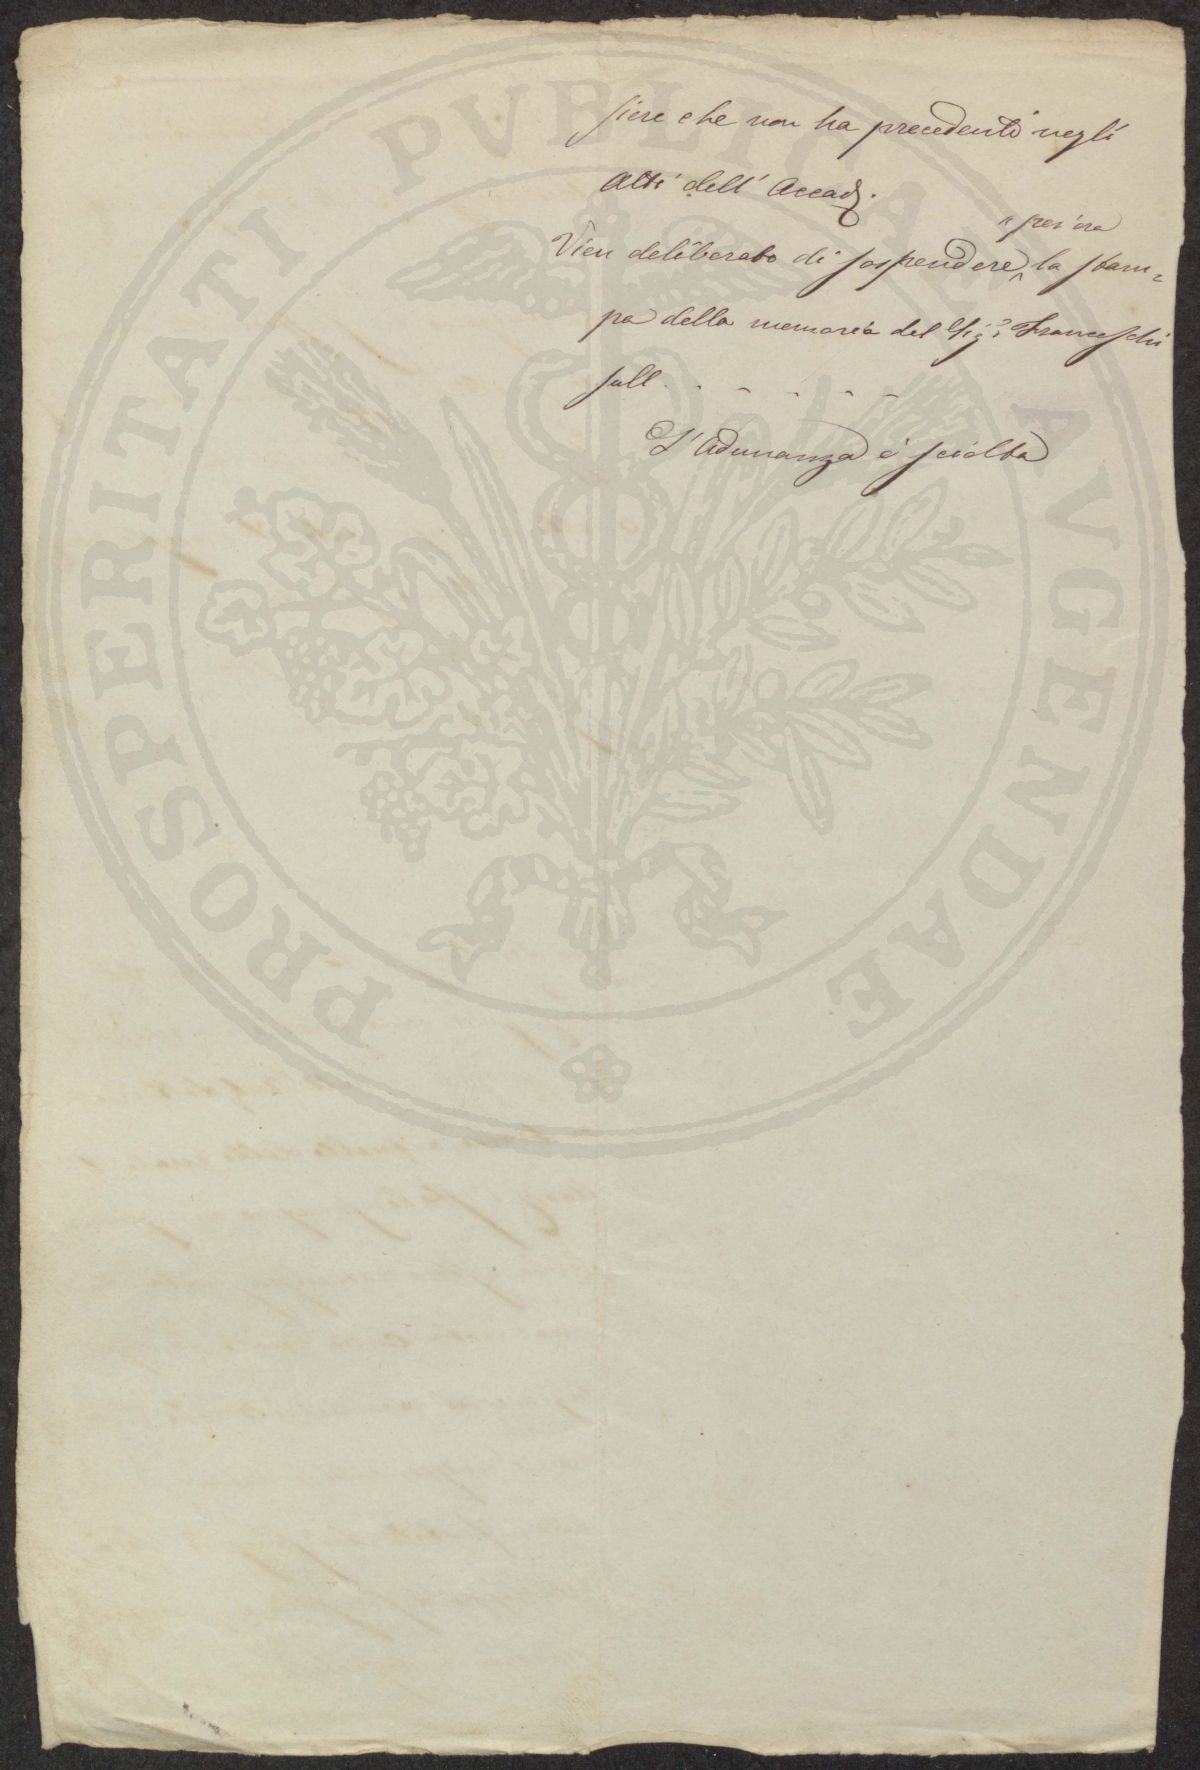 siere che non ha precedenti negli
Atti dell' Accad.
" per ora
Vien deliberato di sospendere ^ la stam=
pa della memoria del Sig.r Franceschi
sull . . . . . .
L'Adunanza è sciolta
PROSPERITATI PVBLICAE AVGENDAE